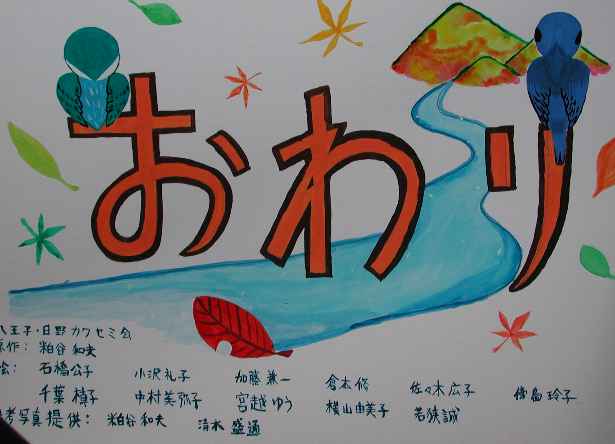 おわり
八王子・日野カワセミ会
原作: 粕谷和夫
絵: 石橋公子 小沢礼子 加藤兼一 倉本修 佐々木広子 玲子
千葉槙子 中村美弥子 宮越ゆう 横山由美子 若狭誠
参考写真提供: 粕谷和夫 清水盛通